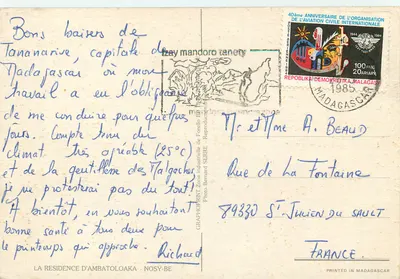 Bons baisers de
Tananarive, capitale de
Madagascar où mon
travail a eu l'obligeance
de me conduire pour quelques
jours. Compte tenu du
climat très agréable (25°C)
et de la gentillesse des Malgaches,
je ne protesterai pas du tout!
A bientôt, en vous souhaitant
bonne santé à tous deux pour
le printemps qui approche.
Richard
LA RESIDENCE D'AMBATOLOAKA - NOSY-BE
Izay mandoro tanety
40ème ANNIVERSAIRE DE L'ORGANISATION
DE L'AVIATION CIVILE INTERNATIONALE
1944 1984
100 FMG
20 ARIARY
REPOBLIKA DEMOKRATIKA MALAGASY
1985
MADAGASCAR
Mr et Mme A. BEAUD
Rue de la Fontaine
89330 St-JULIEN DU SAULT
FRANCE
PRINTED IN MADAGASCAR